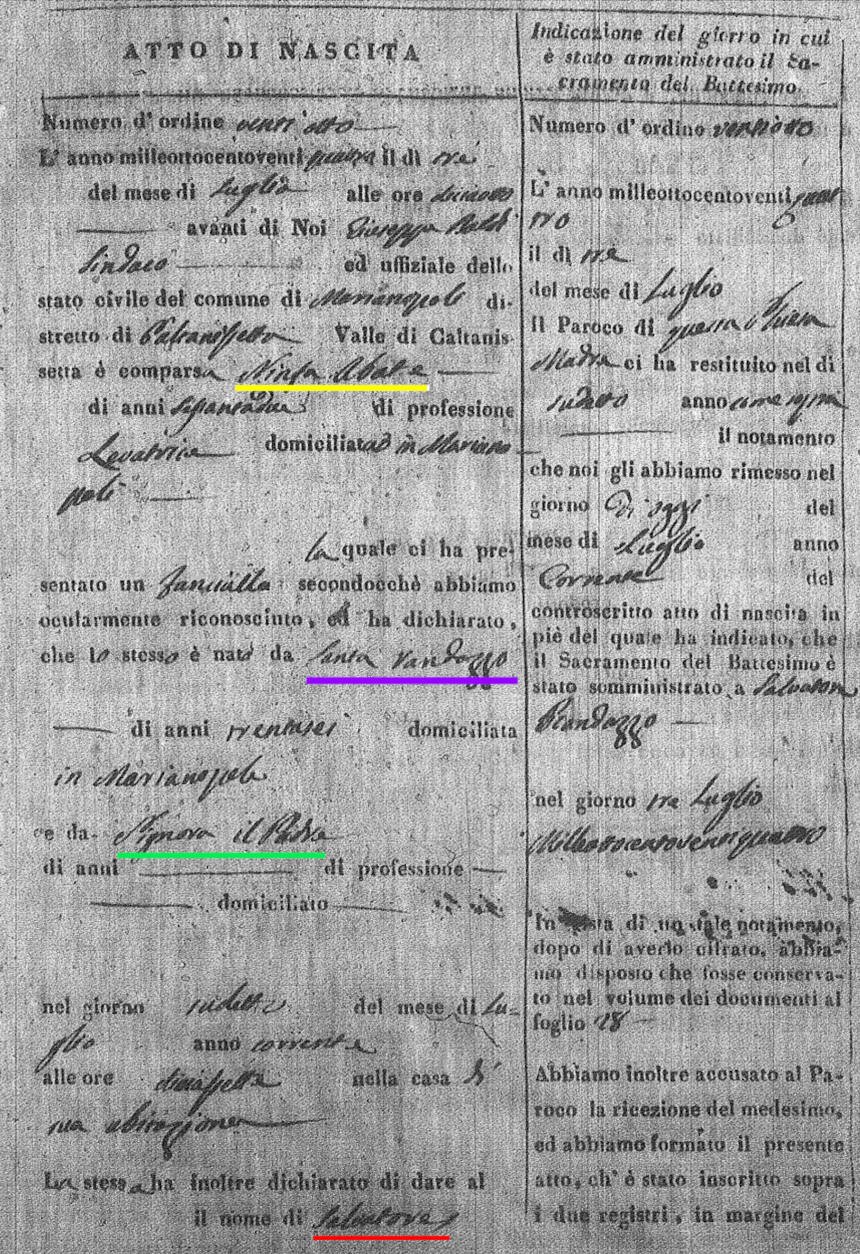 ATTO DI NASCITA
Numero d'ordine vent'otto
L'anno milleottocentoventi quattro il dì tre
del mese di Luglio alle ore
avanti di Noi Giuseppe
Sindaco ed uffiziale dello
stato civile del comune di Marianopoli di-
stretto di Caltanissetta Valle di Caltanis-
setta è comparsa Ninfa Abate
di anni sessantadue di professione
Levatrice domiciliata in Mariano
poli
la quale ci ha pre-
sentato un fanciullo secondocchè abbiamo
ocularmente riconosciuto, ed ha dichiarato,
che lo stesso è nato da Santa Randazzo
di anni trentasei domiciliata
in Marianopoli
e da s'ignora il Padre
di anni di professione
domiciliato
nel giorno sudetto del mese di Lu-
glio anno corrente
alle ore diciasette nella casa di
sua abitazione
La stessa ha inoltre dichiarato di dare al
il nome di Salvatore
Indicazione del giorno in cui
è stato amministrato il Sa-
cramento del Battesimo.
Numero d'ordine ventiotto
L'anno milleottocentoventi quat
tro
il dì tre
del mese di Luglio
Il Paroco di questa Chiesa
Madre ci ha restituito nel dì
sudetto anno come sopra
il notamento
che noi gli abbiamo rimesso nel
giorno di oggi del
mese di Luglio anno
Corrente del
controscritto atto di nascita in
piè del quale ha indicato, che
il Sacramento del Battesimo è
stato somministrato a Salvatore
Randazzo
nel giorno tre Luglio
Milleottocentoventiquattro
In vista di un tale notamento,
dopo di averlo cifrato, abbia-
mo disposto che fosse conserva-
to nel volume dei documenti al
foglio 28
Abbiamo inoltre accusato al Pa-
roco la ricezione del medesimo,
ed abbiamo formato il presente
atto, ch'è stato inscritto sopra
i due registri, in margine del